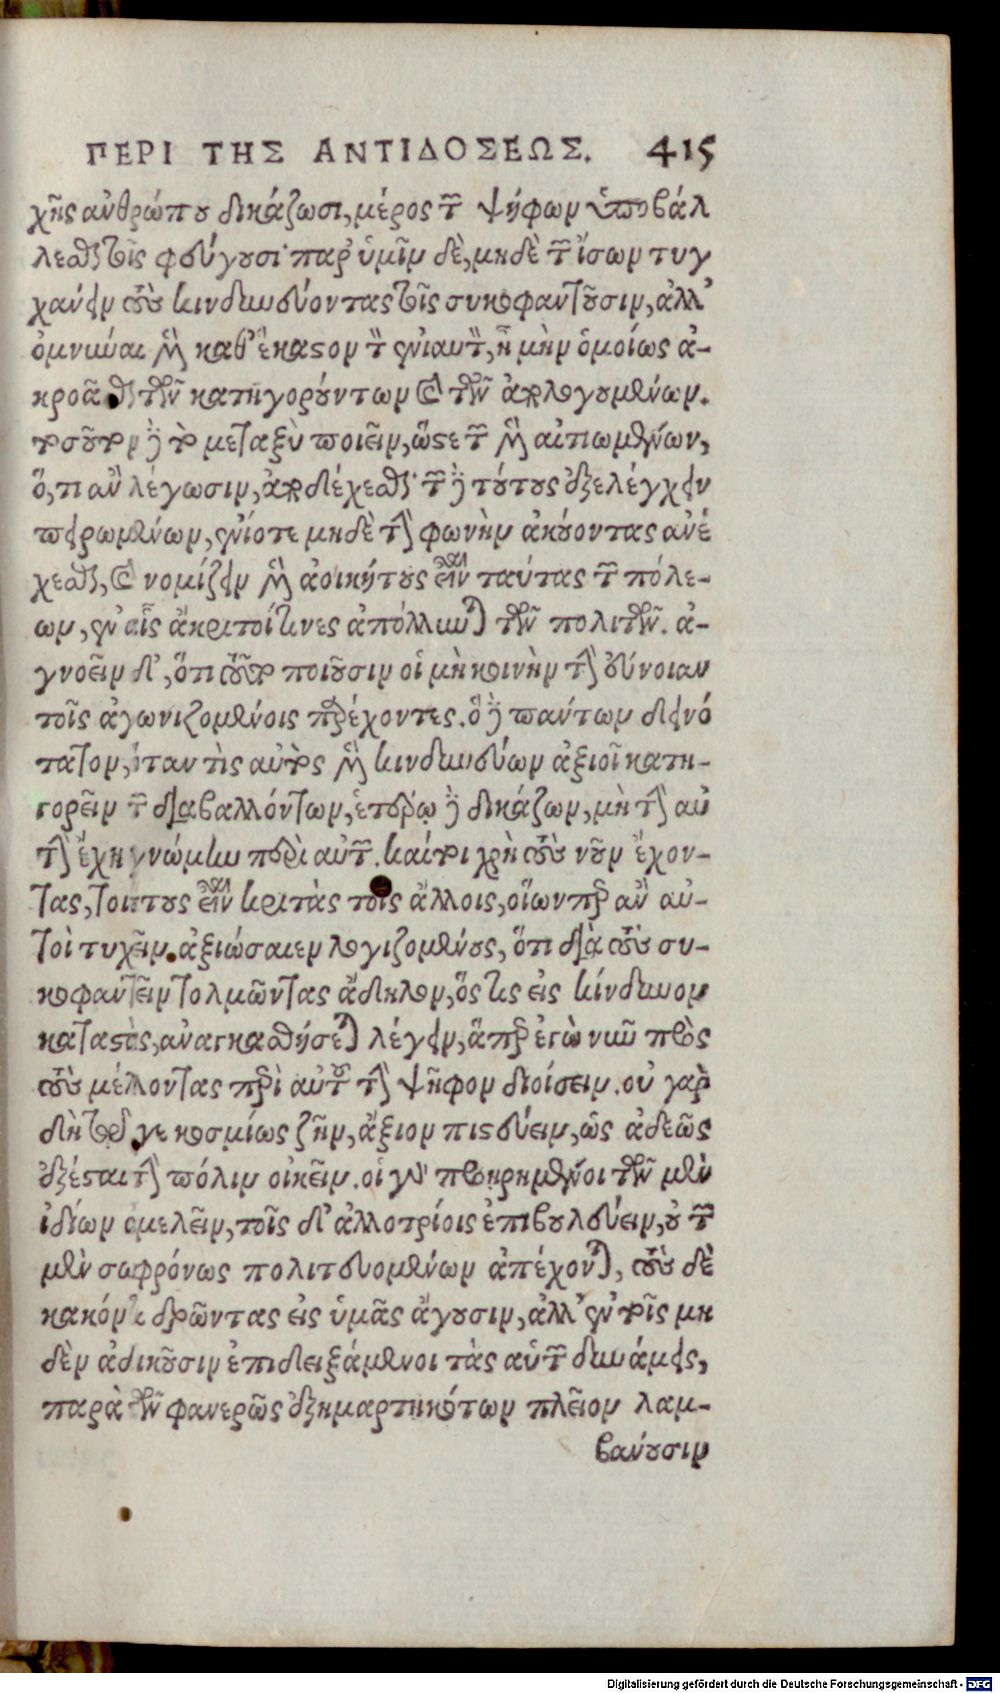 ΠΕΡΙ ΤΗΣ ΑΝΤΙΔΟΣΕΩΣ. 415
χῆς ἀνθρώπου δικάζωσι, μέρος τῶν ψήφων ὑποβάλ
λεσθαι τοῖς φεύγουσι· παρ' ὑμῖν δὲ, μηδὲ τῶν ἴσων τυγ
χάνειν τοὺς κινδυνεύοντας τοῖς συκοφαντοῦσιν, ἀλλ'
ὀμνύναι μὲν καθ' ἕκαστον τὸν ἐνιαυτὸν, ἦ μὴν ὁμοίως ἀ-
κροᾶσθαι τῶν κατηγορούντων καὶ τῶν ἀπολογουμένων.
τοσοῦτον δὲ τὸ μεταξὺ ποιεῖν, ὥστε τῶν μὲν αἰτιωμένων,
ὅ,τι ἂν λέγωσιν, ἀποδέχεσθαι· τῶν δὲ τούτους ἐξελέγχειν
πειρωμένων, ἐνίοτε μηδὲ τὴν φωνὴν ἀκούοντας ἀνέ
χεσθαι, καὶ νομίζειν μὲν ἀοικήτους εἶναι ταύτας τῶν πόλε-
ων, ἐν αἷς ἄκριτοί τινες ἀπόλλυνται τῶν πολιτῶν. ἀ-
γνοεῖν δ', ὅτι τοῦτο ποιοῦσιν οἱ μὴ κοινὴν τὴν εὔνοιαν
τοῖς ἀγωνιζομένοις παρέχοντες. ὃ δὲ πάντων δεινό
τατον, ὅταν τὶς αὐτὸς μὲν κινδυνεύων ἀξιοῖ κατη-
γορεῖν τῶν διαβαλλόντων, ἑτέρῳ δὲ δικάζων, μὴ τὴν αὐ
τὴν ἔχῃ γνώμην περὶ αὐτῶν. καίτοι χρὴ τοὺς νοῦν ἔχον-
τας, τοιούτους εἶναι κριτὰς τοῖς ἄλλοις, οἵων περ ἂν αὐ-
τοὶ τυχεῖν ἀξιώσαιεν λογιζομένους, ὅτι διὰ τοὺς συ-
κοφαντεῖν τολμῶντας ἄδηλον, ὅστις εἰς κίνδυνον
καταστὰς, ἀναγκασθήσεται λέγειν, ἅπερ ἐγὼ νῦν πρὸς
τοὺς μέλλοντας περὶ αὐτοῦ τὴν ψῆφον διοίσειν. οὐ γὰρ
δὴ τῷ γε κοσμίως ζῆν, ἄξιον πιστεύειν, ὡς ἀδεῶς
ἐξέσται τὴν πόλιν οἰκεῖν. οἱ γὰρ προῃρημένοι τῶν μὲν
ἰδίων ἀμελεῖν, τοῖς δ' ἀλλοτρίοις ἐπιβουλεύειν, οὐ τῶν
μὲν σωφρόνως πολιτευομένων ἀπέχονται, τοὺς δὲ
κακόν τι δρῶντας εἰς ὑμᾶς ἄγουσιν, ἀλλ' ἐν τοῖς μη
δὲν ἀδικοῦσιν ἐπιδειξάμενοι τὰς αὑτῶν δυνάμεις,
παρὰ τῶν φανερῶς ἐξημαρτηκότων πλεῖον λαμ-
βάνουσιν
Digitalisierung gefördert durch die Deutsche Forschungsgemeinschaft - DFG